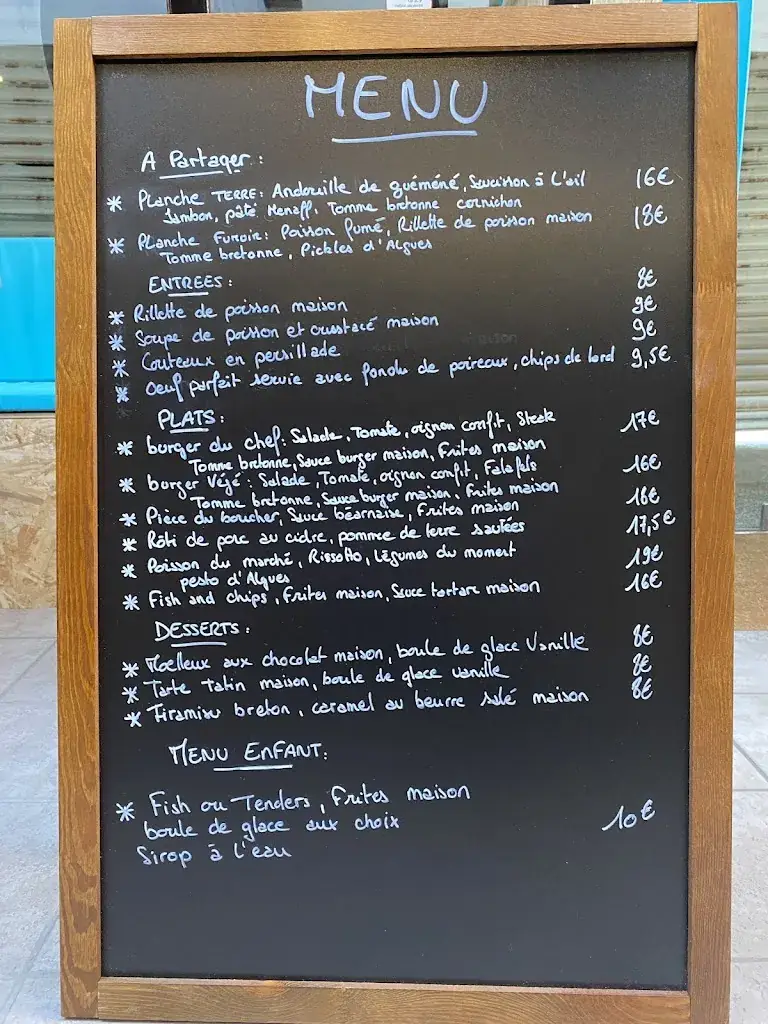 MENU
A Partager :
* Planche TERRE: Andouille de guéméné, Saucisson à L'ail 16€
Jambon, pâté Henaff. Tomme bretonne cornichon
* Planche Fumoir: Poisson fumé, Rillette de poisson maison 18€
Tomme bretonne, Pickles d'Algues
ENTREES :
* Rillette de poisson maison 8€
* Soupe de poisson et crustacé maison 9€
* Couteaux en persillade 9€
* Oeuf parfait servie avec fondu de poireaux, chips de lard 9,5€
PLATS :
* burger du chef: Salade, Tomate, oignon confit, Steak 17€
Tomme bretonne, Sauce burger maison, Frites maison
* burger Végé : Salade, Tomate, oignon confit, Falafels 16€
Tomme bretonne, Sauce burger maison, Frites maison
* Pièce du boucher, Sauce béarnaise, Frites maison 18€
* Rôti de porc au cidre, pomme de terre sautées 17,5€
* Poisson du marché, Rissotto, Légumes du moment 19€
pesto d'Algues
* Fish and chips, Frites maison, Sauce tartare maison 16€
DESSERTS :
* Moelleux aux chocolat maison, boule de glace Vanille 8€
* Tarte tatin maison, boule de glace vanille 8€
* Tiramisu breton, caramel au beurre salé maison 8€
MENU ENFANT:
* Fish ou Tenders, Frites maison
boule de glace aux choix 10€
Sirop à l'eau